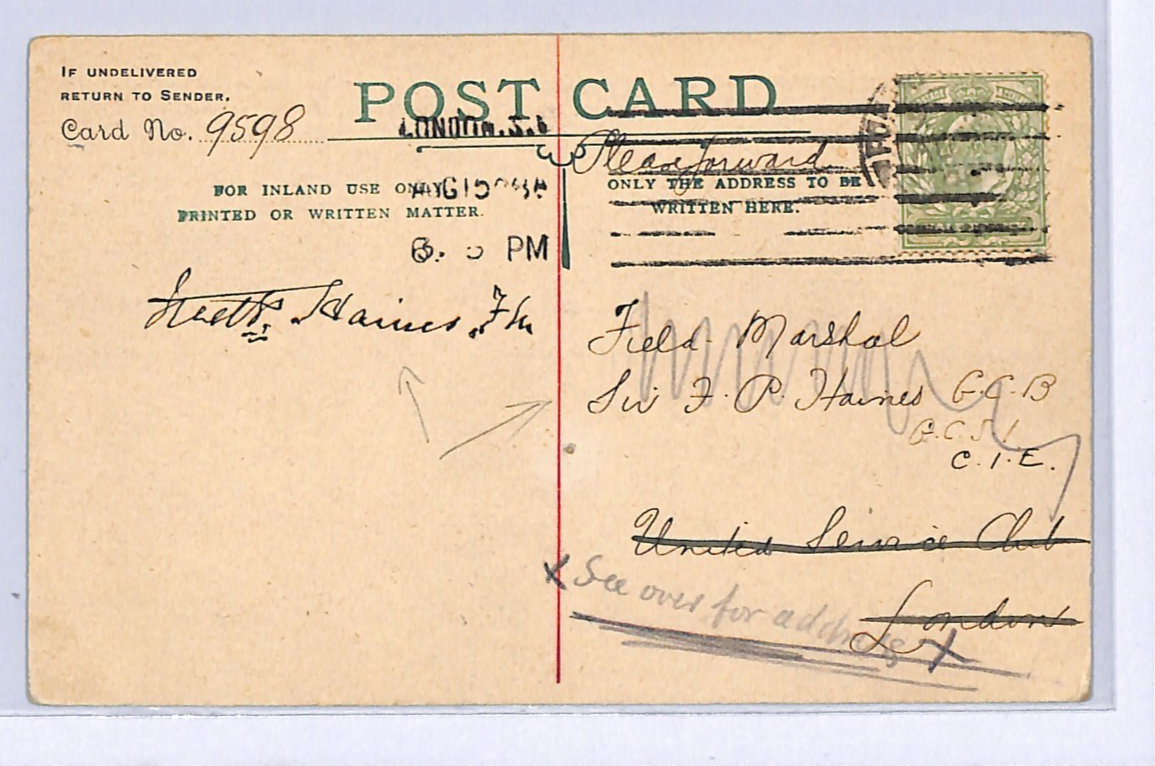 IF UNDELIVERED
RETURN TO SENDER.
Card No. 9598
POST CARD
LONDON. S.
Please forward
FOR INLAND USE ONLY
PRINTED OR WRITTEN MATTER.
ONLY THE ADDRESS TO BE
WRITTEN HERE.
PM
Haines F M
Field Marshal
Sir F. P. Haines G.C.B
G.C.S.I
C.I.E.
United Service Club
London
x See over for address x